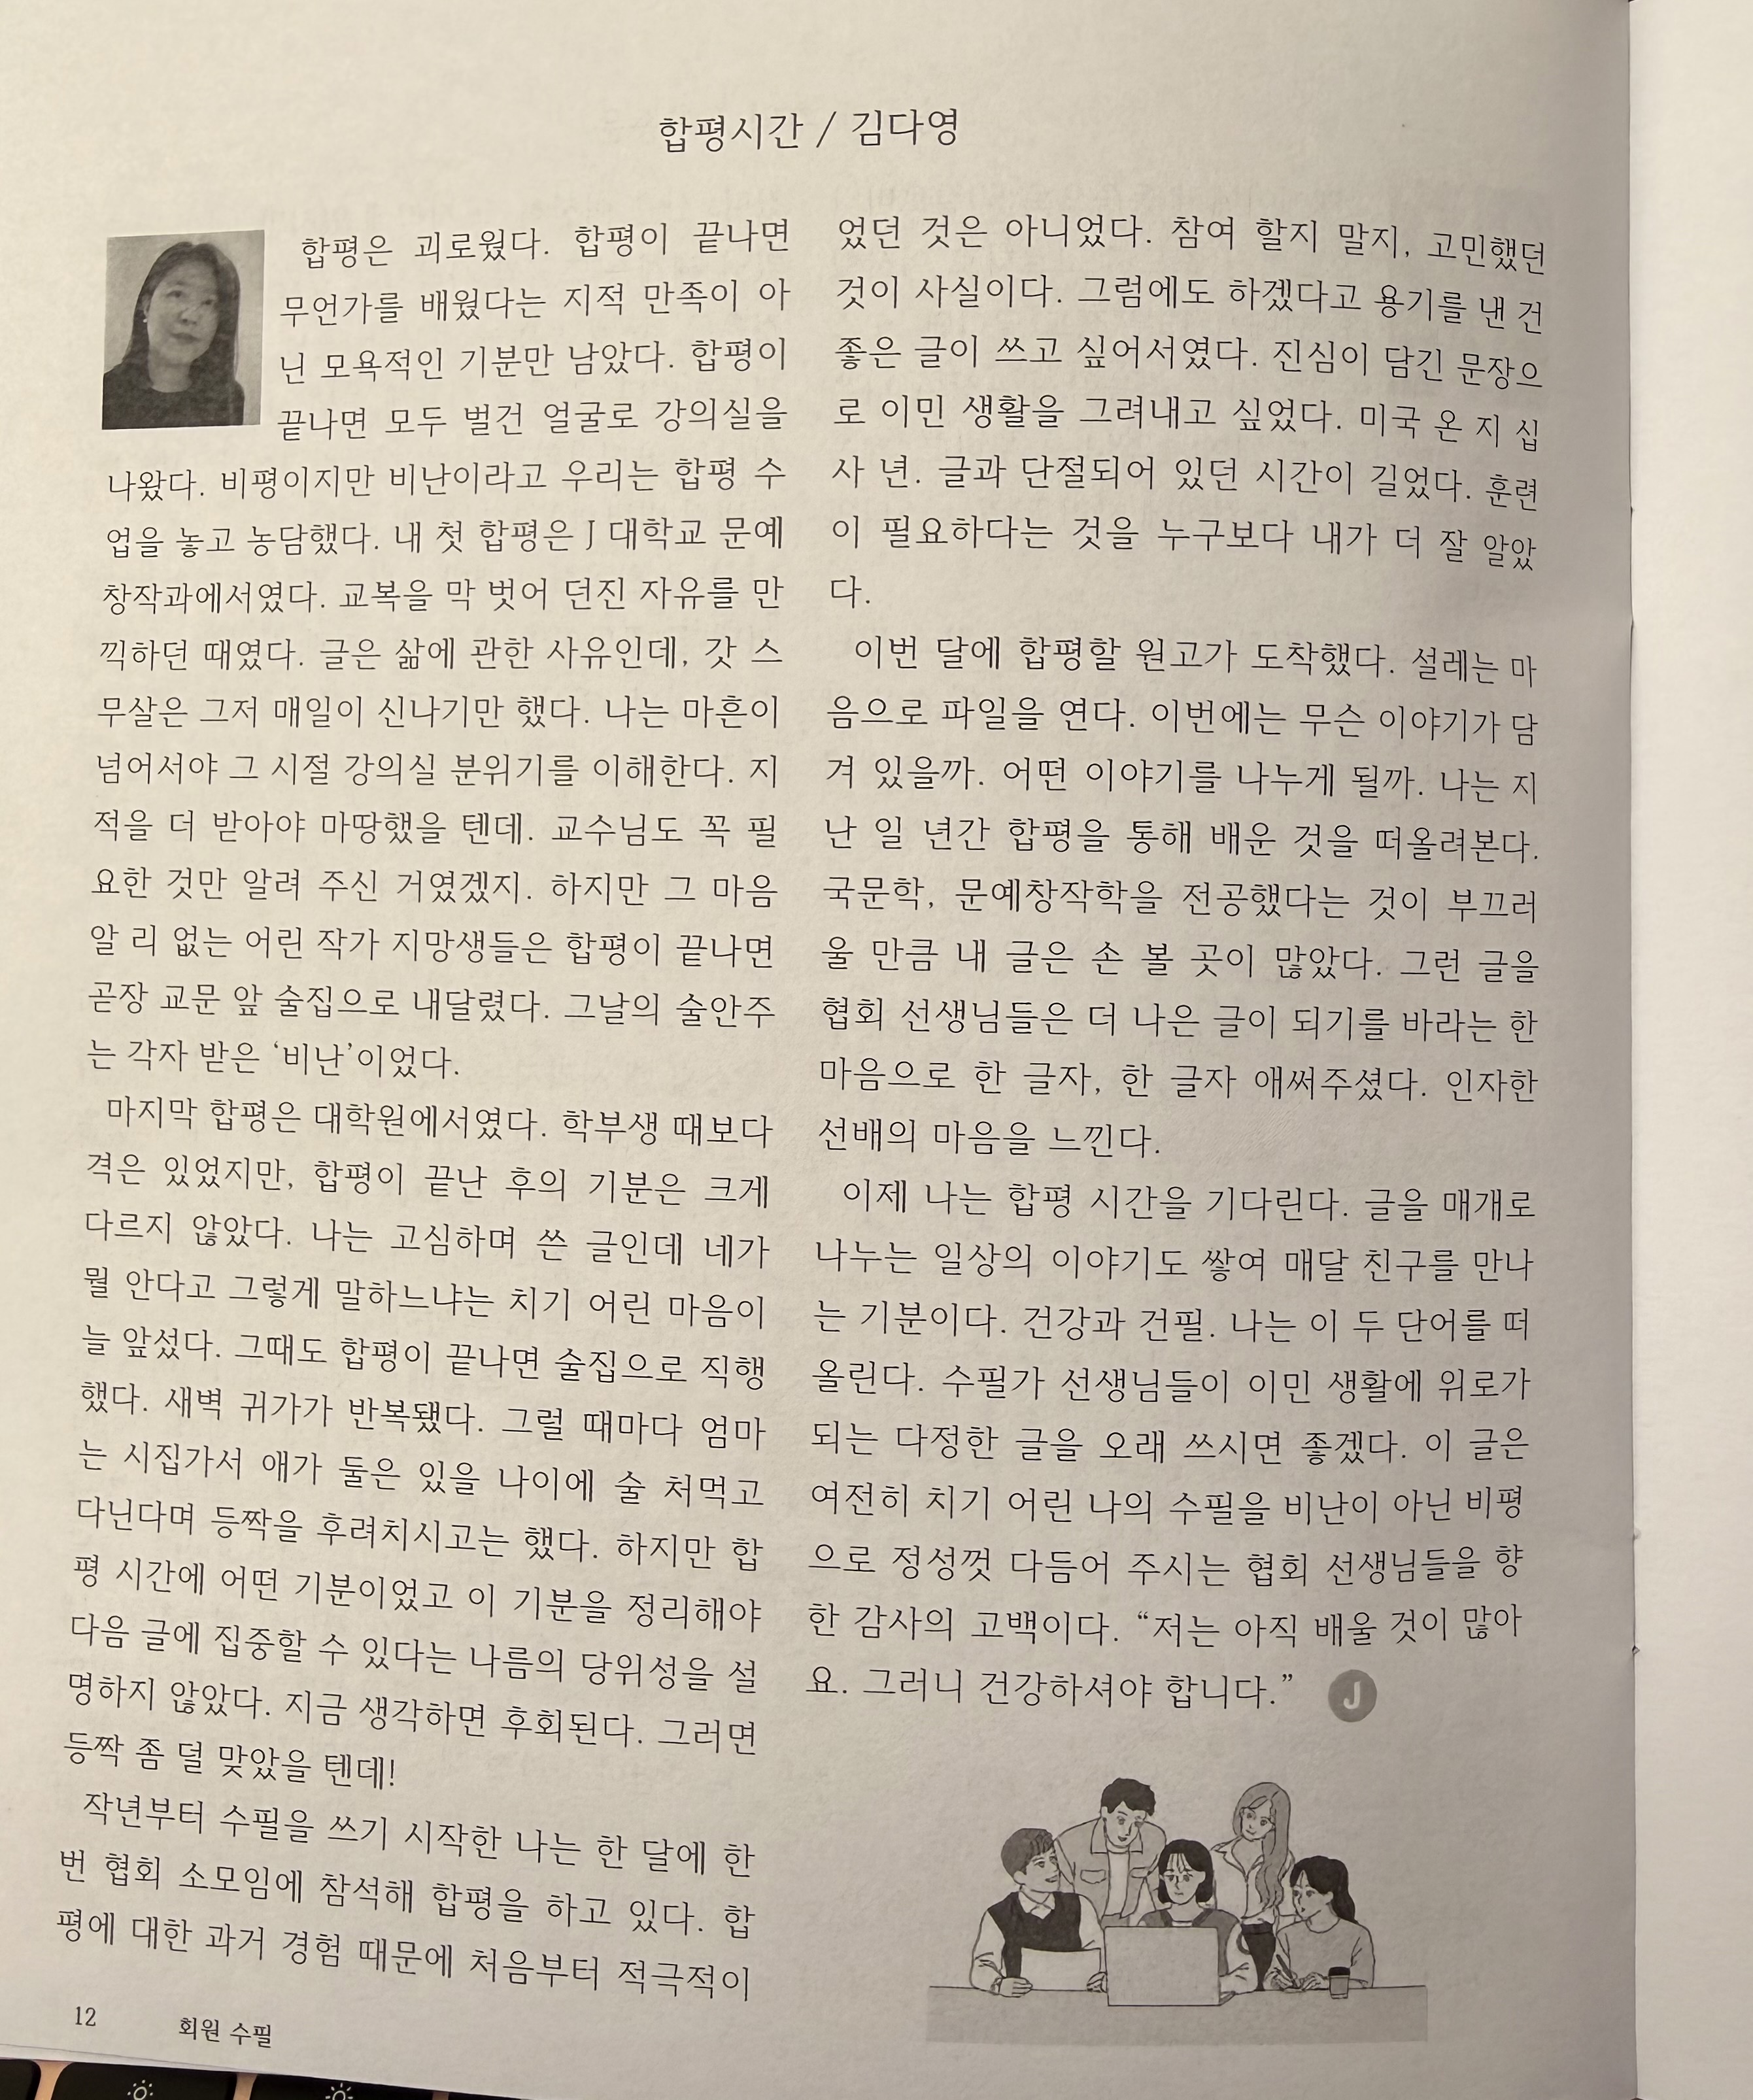 합평시간 / 김다영
합평은 괴로웠다. 합평이 끝나면
무언가를 배웠다는 지적 만족이 아
닌 모욕적인 기분만 남았다. 합평이
끝나면 모두 벌건 얼굴로 강의실을
나왔다. 비평이지만 비난이라고 우리는 합평 수
업을 놓고 농담했다. 내 첫 합평은 J 대학교 문예
창작과에서였다. 교복을 막 벗어 던진 자유를 만
끽하던 때였다. 글은 삶에 관한 사유인데, 갓 스
무살은 그저 매일이 신나기만 했다. 나는 마흔이
넘어서야 그 시절 강의실 분위기를 이해한다. 지
적을 더 받아야 마땅했을 텐데. 교수님도 꼭 필
요한 것만 알려 주신 거였겠지. 하지만 그 마음
알 리 없는 어린 작가 지망생들은 합평이 끝나면
곧장 교문 앞 술집으로 내달렸다. 그날의 술안주
는 각자 받은 ‘비난’이었다.
마지막 합평은 대학원에서였다. 학부생 때보다
격은 있었지만, 합평이 끝난 후의 기분은 크게
다르지 않았다. 나는 고심하며 쓴 글인데 네가
뭘 안다고 그렇게 말하느냐는 치기 어린 마음이
늘 앞섰다. 그때도 합평이 끝나면 술집으로 직행
했다. 새벽 귀가가 반복됐다. 그럴 때마다 엄마
는 시집가서 애가 둘은 있을 나이에 술 처먹고
다닌다며 등짝을 후려치시고는 했다. 하지만 합
평 시간에 어떤 기분이었고 이 기분을 정리해야
다음 글에 집중할 수 있다는 나름의 당위성을 설
명하지 않았다. 지금 생각하면 후회된다. 그러면
등짝 좀 덜 맞았을 텐데!
작년부터 수필을 쓰기 시작한 나는 한 달에 한
번 협회 소모임에 참석해 합평을 하고 있다. 합
평에 대한 과거 경험 때문에 처음부터 적극적이
었던 것은 아니었다. 참여 할지 말지, 고민했던
것이 사실이다. 그럼에도 하겠다고 용기를 낸 건
좋은 글이 쓰고 싶어서였다. 진심이 담긴 문장으
로 이민 생활을 그려내고 싶었다. 미국 온 지 십
사 년. 글과 단절되어 있던 시간이 길었다. 훈련
이 필요하다는 것을 누구보다 내가 더 잘 알았
다.
이번 달에 합평할 원고가 도착했다. 설레는 마
음으로 파일을 연다. 이번에는 무슨 이야기가 담
겨 있을까. 어떤 이야기를 나누게 될까. 나는 지
난 일 년간 합평을 통해 배운 것을 떠올려본다.
국문학, 문예창작학을 전공했다는 것이 부끄러
울 만큼 내 글은 손 볼 곳이 많았다. 그런 글을
협회 선생님들은 더 나은 글이 되기를 바라는 한
마음으로 한 글자, 한 글자 애써주셨다. 인자한
선배의 마음을 느낀다.
이제 나는 합평 시간을 기다린다. 글을 매개로
나누는 일상의 이야기도 쌓여 매달 친구를 만나
는 기분이다. 건강과 건필. 나는 이 두 단어를 떠
올린다. 수필가 선생님들이 이민 생활에 위로가
되는 다정한 글을 오래 쓰시면 좋겠다. 이 글은
여전히 치기 어린 나의 수필을 비난이 아닌 비평
으로 정성껏 다듬어 주시는 협회 선생님들을 향
한 감사의 고백이다. “저는 아직 배울 것이 많아
요. 그러니 건강하셔야 합니다.” J
12 회원 수필